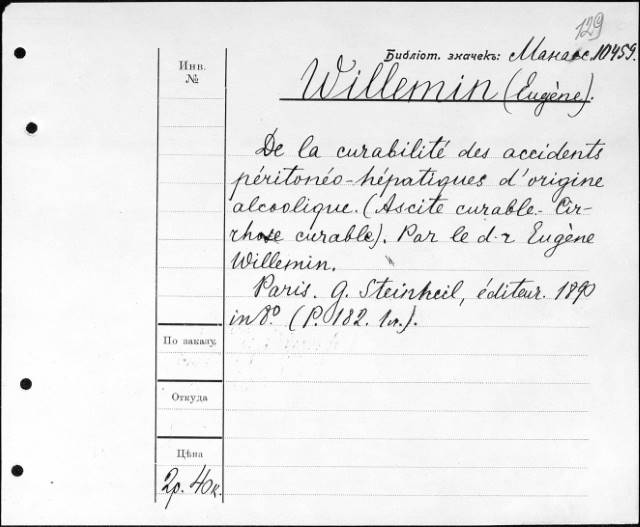 129
Библіот. значекъ: Манасс. 10459.
Инв.
№
Willemin (Eugène).
De la curabilité des accidents
péritonéo-hépatiques d'origine
alcoolique. (Ascite curable.- Cir-
rhose curable). Par le d-r Eugène
Willemin.
Paris. G. Steinheil, éditeur. 1890
in 8.° (P. 182. 1 н.).
По заказу.
Откуда
Цѣна
2р. 40к.